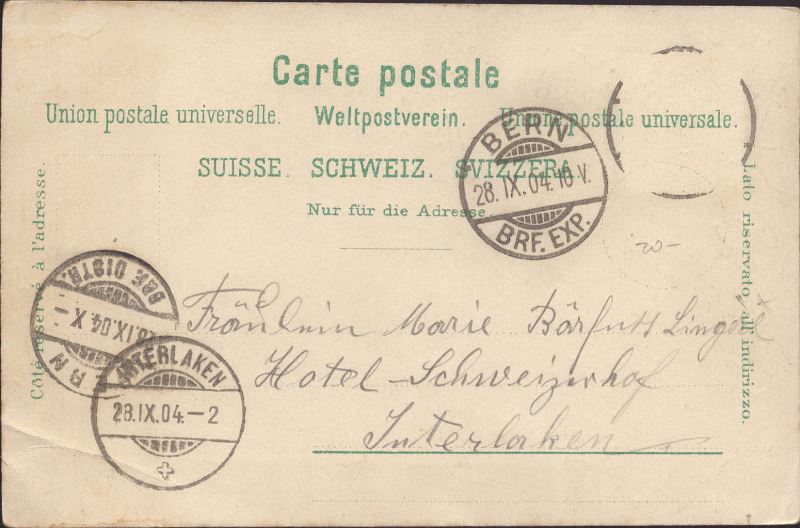 Carte postale
Union postale universelle. Weltpostverein. Unione postale universale.
SUISSE. SCHWEIZ. SVIZZERA.
Nur für die Adresse
Côté réservé à l'adresse.
Lato riservato all'indirizzo.
BERN
28.IX.04.10 V.
BRF. EXP.
20-
BRF. DISTR.
28.IX.04.X-
BERN
INTERLAKEN
28.IX.04.-2
Fräulein Marie Bärfuss
Hotel-Schweizerhof
Interlaken